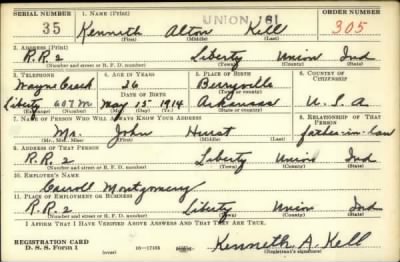 SERIAL NUMBER 1. NAME (Print) UNION 161 ORDER NUMBER
35 Kenneth Alton Kell 305
(First) (Middle) (Last)
2. ADDRESS (Print)
R.R. 2 Liberty Union Ind
(Number and street or R. F. D. number) (Town) (County) (State)
3. TELEPHONE 4. AGE IN YEARS 5. PLACE OF BIRTH 6. COUNTRY OF CITIZENSHIP
Wayne Creek 26 Berryville
DATE OF BIRTH
Liberty 607M May 15 1914 Arkansas U.S.A
(Exchange) (Number) (Mo.) (Day) (Yr.) (State or country)
7. NAME OF PERSON WHO WILL ALWAYS KNOW YOUR ADDRESS 8. RELATIONSHIP OF THAT PERSON
Mr. John Hurst father-in-law
(Mr., Mrs., Miss) (First) (Middle) (Last)
9. ADDRESS OF THAT PERSON
R.R. 2 Liberty Union Ind
(Number and street or R. F. D. number) (Town) (County) (State)
10. EMPLOYER'S NAME
Carroll Montgomery
11. PLACE OF EMPLOYMENT OR BUSINESS
R.R. 2 Liberty Union Ind
(Number and street or R. F. D. number) (Town) (County) (State)
I AFFIRM THAT I HAVE VERIFIED ABOVE ANSWERS AND THAT THEY ARE TRUE.
REGISTRATION CARD
D. S. S. Form 1 (over) Kenneth A. Kell
(Registrant's signature)